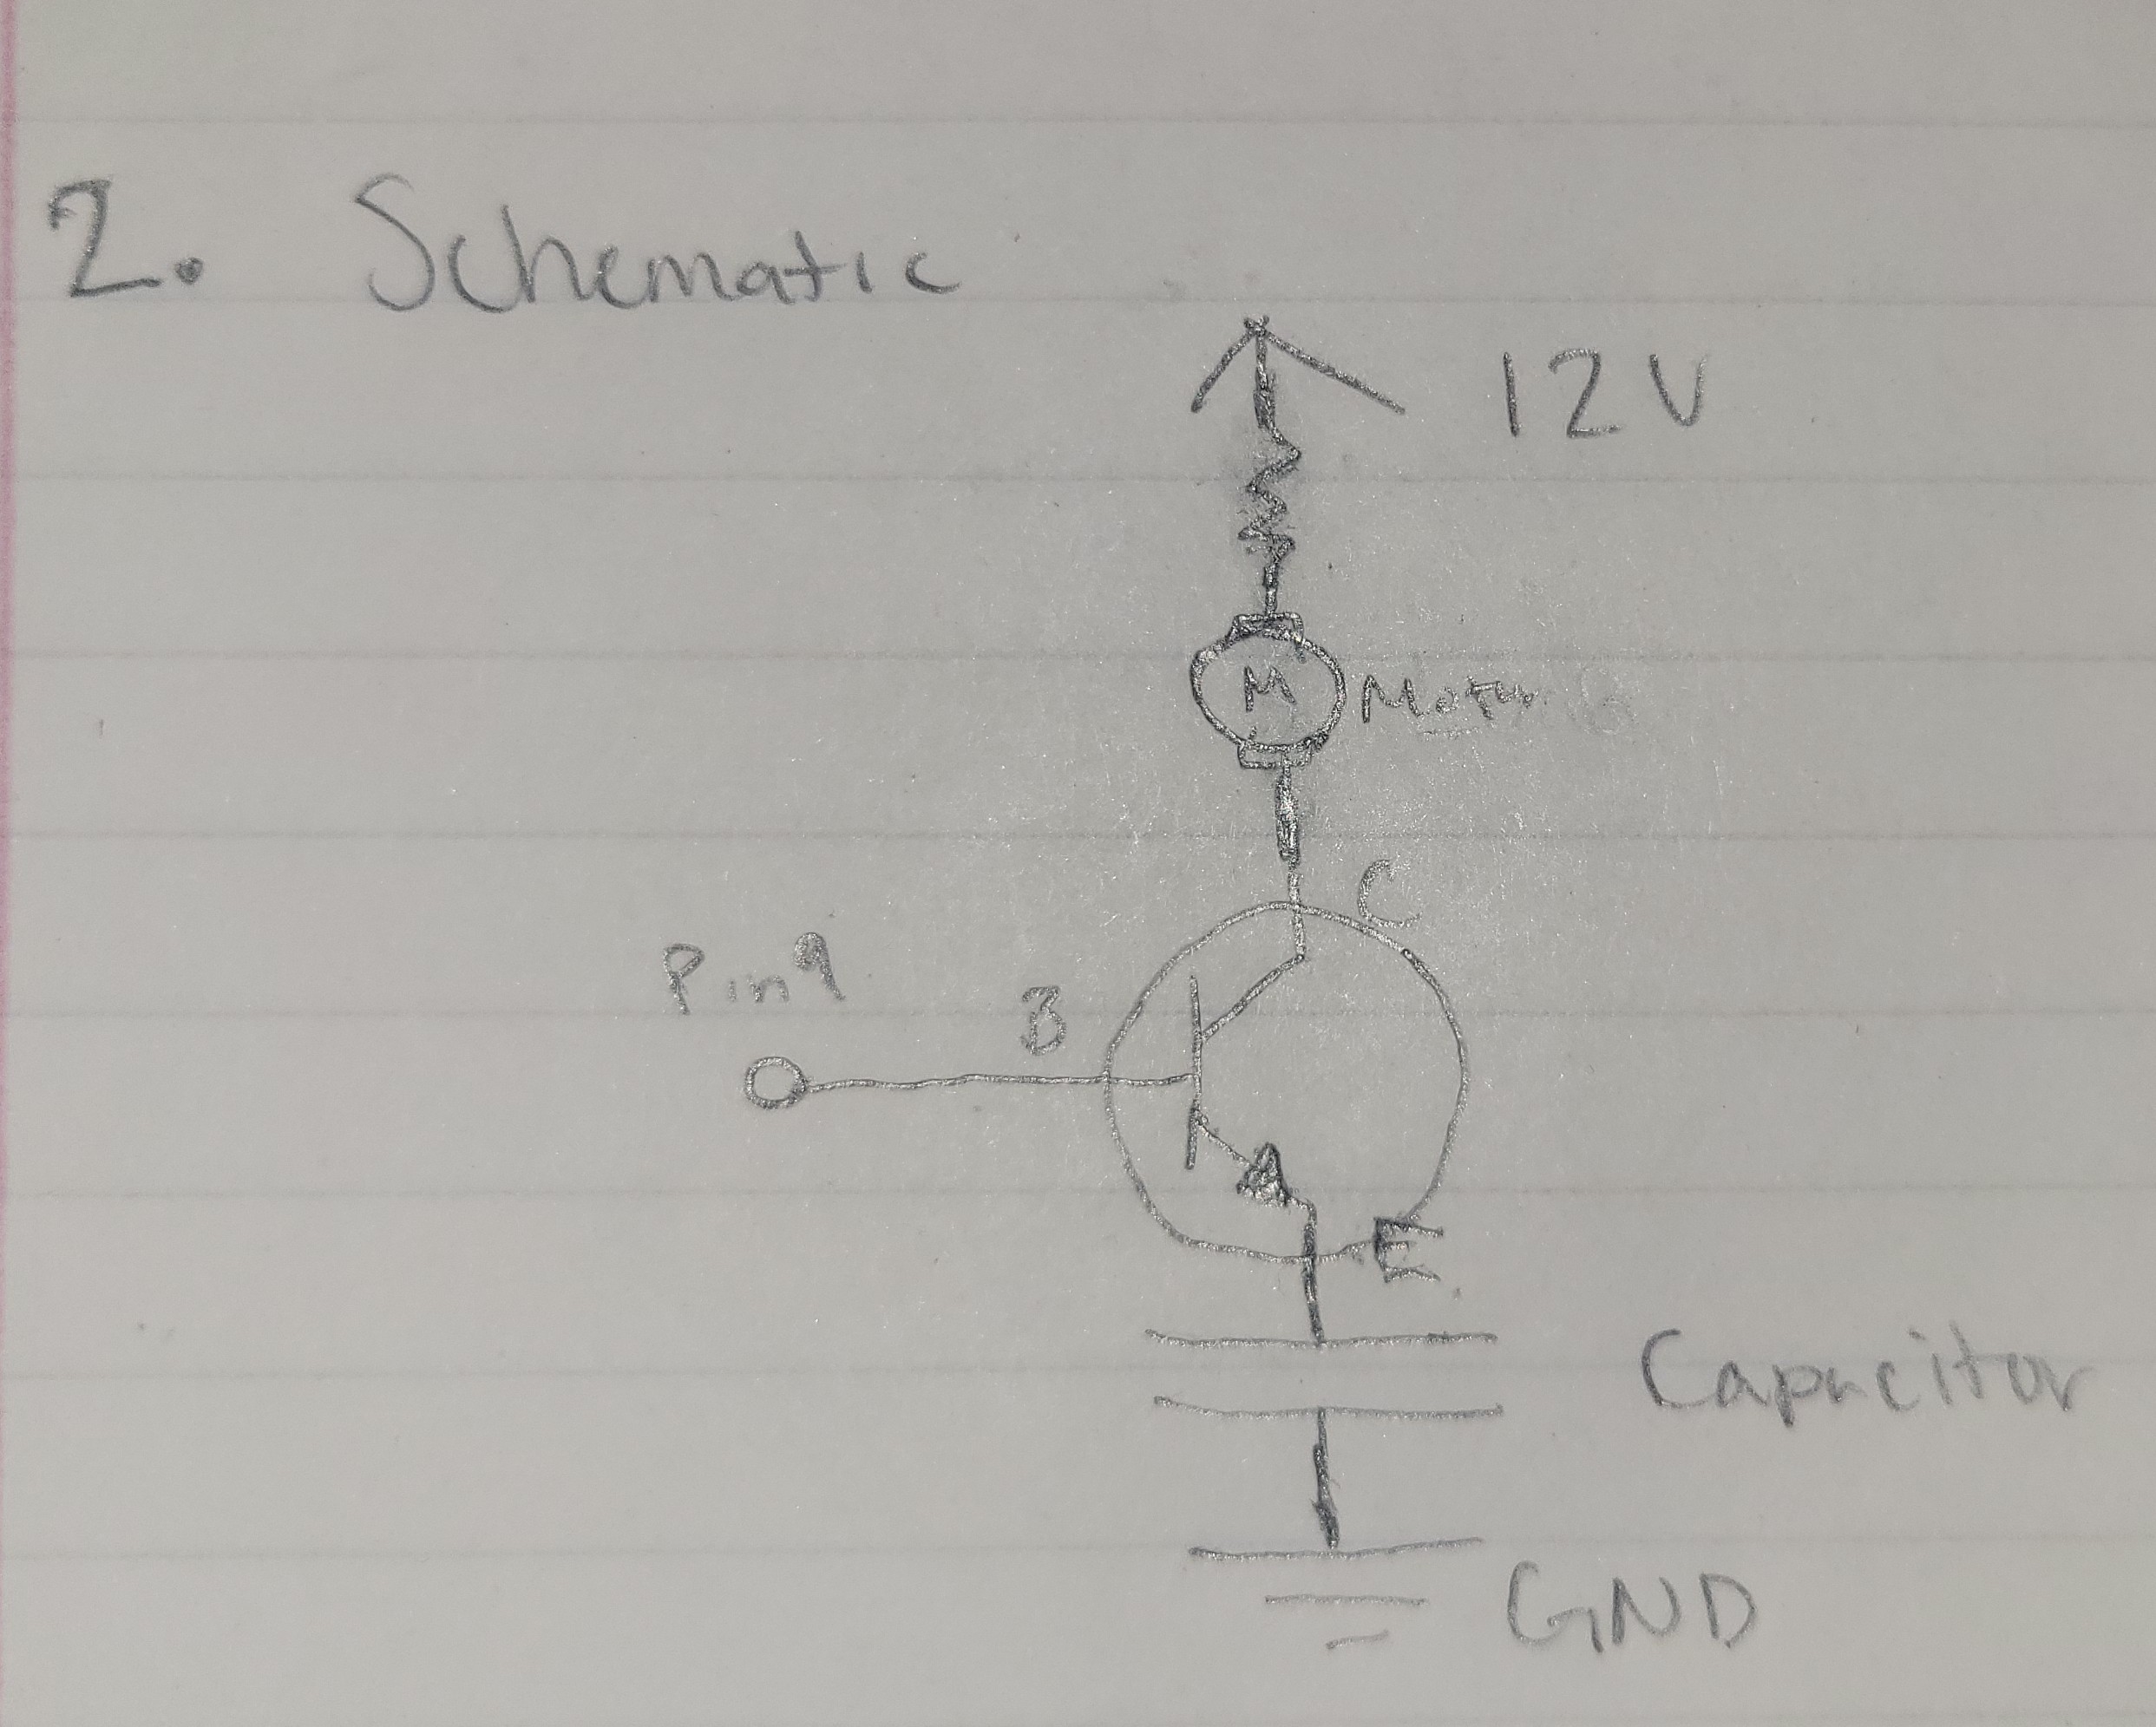 2. Schematic
12V
M Motor
C
Pin9
B
E
Capacitor
GND